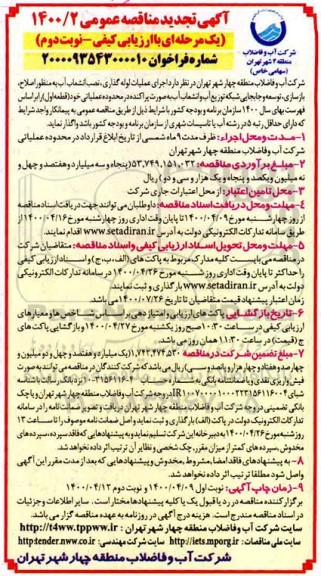 آگهی تجدید مناقصه عمومی ۱۴۰۰/۲
(یک مرحله‌ای با ارزیابی کیفی – نوبت دوم)
شماره فراخوان ۲۰۰۰۰۹۳۵۴۳۰۰۰۰۱۰
شرکت آب و فاضلاب
منطقه ۴ شهر تهران
(سهامی خاص)
شرکت آب و فاضلاب منطقه چهار شهر تهران در نظر دارد اجرای عملیات لوله گذاری، نصب انشعاب آب به منظور اصلاح،
بازسازی، توسعه و جابجایی شبکه توزیع آب و انشعاب آب به صورت پراکنده در محدوده عملیاتی خود (قطعه اول) را بر اساس
فهرست بهای سال ۱۴۰۰ سازمان برنامه و بودجه کشور با شرایط ذیل از طریق مناقصه عمومی به پیمانکار واجد شرایط
که دارای حداقل رتبه ۵ در رشته آب یا تاسیسات شهری از سازمان برنامه و بودجه کشور باشد واگذار نماید.
۱- مدت و محل اجراء: ظرف مدت ۹ ماه شمسی از تاریخ ابلاغ قرارداد در محدوده عملیاتی
شرکت آب و فاضلاب منطقه چهار شهر تهران
۲- مبلغ برآوردی مناقصه: ۵۳,۷۴۹,۱۵۱,۰۳۲ (پنجاه و سه میلیارد و هفتصد و چهل و
نه میلیون و یکصد و پنجاه و یک هزار و سی و دو) ریال
۳- محل تامین اعتبار: از محل اعتبارات جاری شرکت
۴- مهلت و محل دریافت اسناد مناقصه: داوطلبان می توانند جهت دریافت اسناد مناقصه
از روز چهارشنبه مورخ ۱۴۰۰/۰۴/۰۹ تا پایان وقت اداری روز چهارشنبه مورخ ۱۴۰۰/۰۴/۱۶ از
طریق سامانه تدارکات الکترونیکی دولت به آدرس www.setadiran.ir اقدام نمایند.
۵- مهلت و محل تحویل اسناد ارزیابی کیفی و اسناد مناقصه: متقاضیان شرکت
در مناقصه می بایست کلیه مدارک مربوط به پاکت های (الف، ب، ج) و اسناد ارزیابی کیفی
را حداکثر تا پایان وقت اداری روز شنبه مورخ ۱۴۰۰/۰۴/۲۶ در سامانه تدارکات الکترونیکی
دولت به آدرس www.setadiran.ir بارگذاری و ثبت نمایند.
زمان اعتبار پیشنهاد قیمت متقاضیان تا تاریخ ۱۴۰۰/۰۷/۲۶ می باشد.
۶- تاریخ بازگشایی پاکت های ارزیابی و امتیاز دهی بر اساس شاخص ها و معیارهای
ارزیابی کیفی در ساعت ۱۰:۳۰ صبح روز یکشنبه مورخ ۱۴۰۰/۰۴/۲۷ و بازگشایی پاکت های
ج (قیمت) در ساعت ۱۱:۳۰ همان روز می باشد.
۷- مبلغ تضمین شرکت در مناقصه ۱,۷۴۲,۴۷۴,۵۳۰ (یک میلیارد و هفتصد و چهل و دو میلیون و
چهارصد و هفتاد و چهار هزار و پانصد و سی) ریال می باشد که شرکت کنندگان در مناقصه می توانند به صورت
بانکی تضمینی در وجه شرکت آب و فاضلاب منطقه چهار شهر تهران دریافت و تصویر ضمانت نامه را در سامانه
تدارکات الکترونیک دولت در پاکت (الف) بارگذاری و ثبت نماید و اصل ضمانت نامه موصوف را تا ساعت ۱۳
روز شنبه مورخ ۱۴۰۰/۰۴/۲۶ به دبیرخانه این شرکت تسلیم نماید و به پیشنهادهایی که فاقد سپرده، سپرده های
مخدوش، سپرده های کمتر از میزان مقرر، چک شخصی و نظایر آن ترتیب اثر داده نخواهد شد.
۸- به پیشنهادهای فاقد امضاء، مشروط، مخدوش و پیشنهادهایی که بعد از مدت مقرر این آگهی
واصل شود مطلقا ترتیب اثر داده نخواهد شد.
۹- زمان چاپ آگهی: نوبت اول ۱۴۰۰/۰۴/۰۹ و نوبت دوم ۱۴۰۰/۰۴/۱۲
برگزار کننده مناقصه در رد یا قبول یک یا کلیه پیشنهادها مختار است. سایر اطلاعات و جزئیات
در اسناد مناقصه مندرج است. هزینه درج آگهی در روزنامه به عهده برنده مناقصه گزار می باشد.
سایت شرکت آب و فاضلاب منطقه چهار شهر تهران: http://t4ww.tppww.ir
سایت ملی مناقصات: http://iets.mporg.ir سایت شرکت مهندسی: http:tender.nww.co.ir
شرکت آب و فاضلاب منطقه چهار شهر تهران